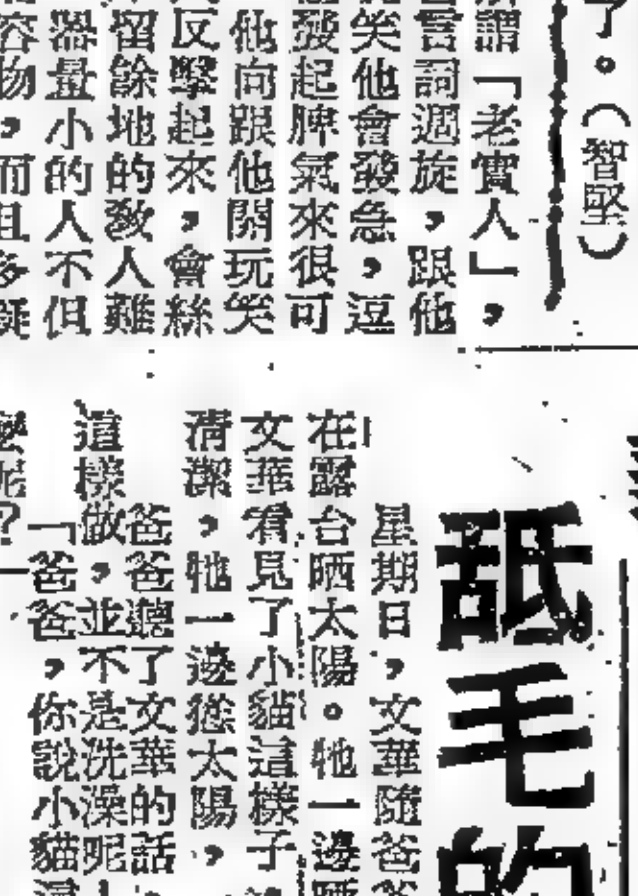 了。（智堅）
謂「老實人」，
言詞週旋，跟他
笑他會發急，逗
發起脾氣來很可
他向跟他開玩笑
反擊起來，會絲
留餘地的敎人難
器量小的人不但
容物，而且多疑
舐毛的
星期日，文華隨爸爸
在露台晒太陽。牠一邊晒
文華看見了小貓這樣子
清潔，牠一邊從太陽，
爸爸聽了文華的話，
這樣做，並不是洗澡呢！
「爸爸，你說小貓
麼呢？